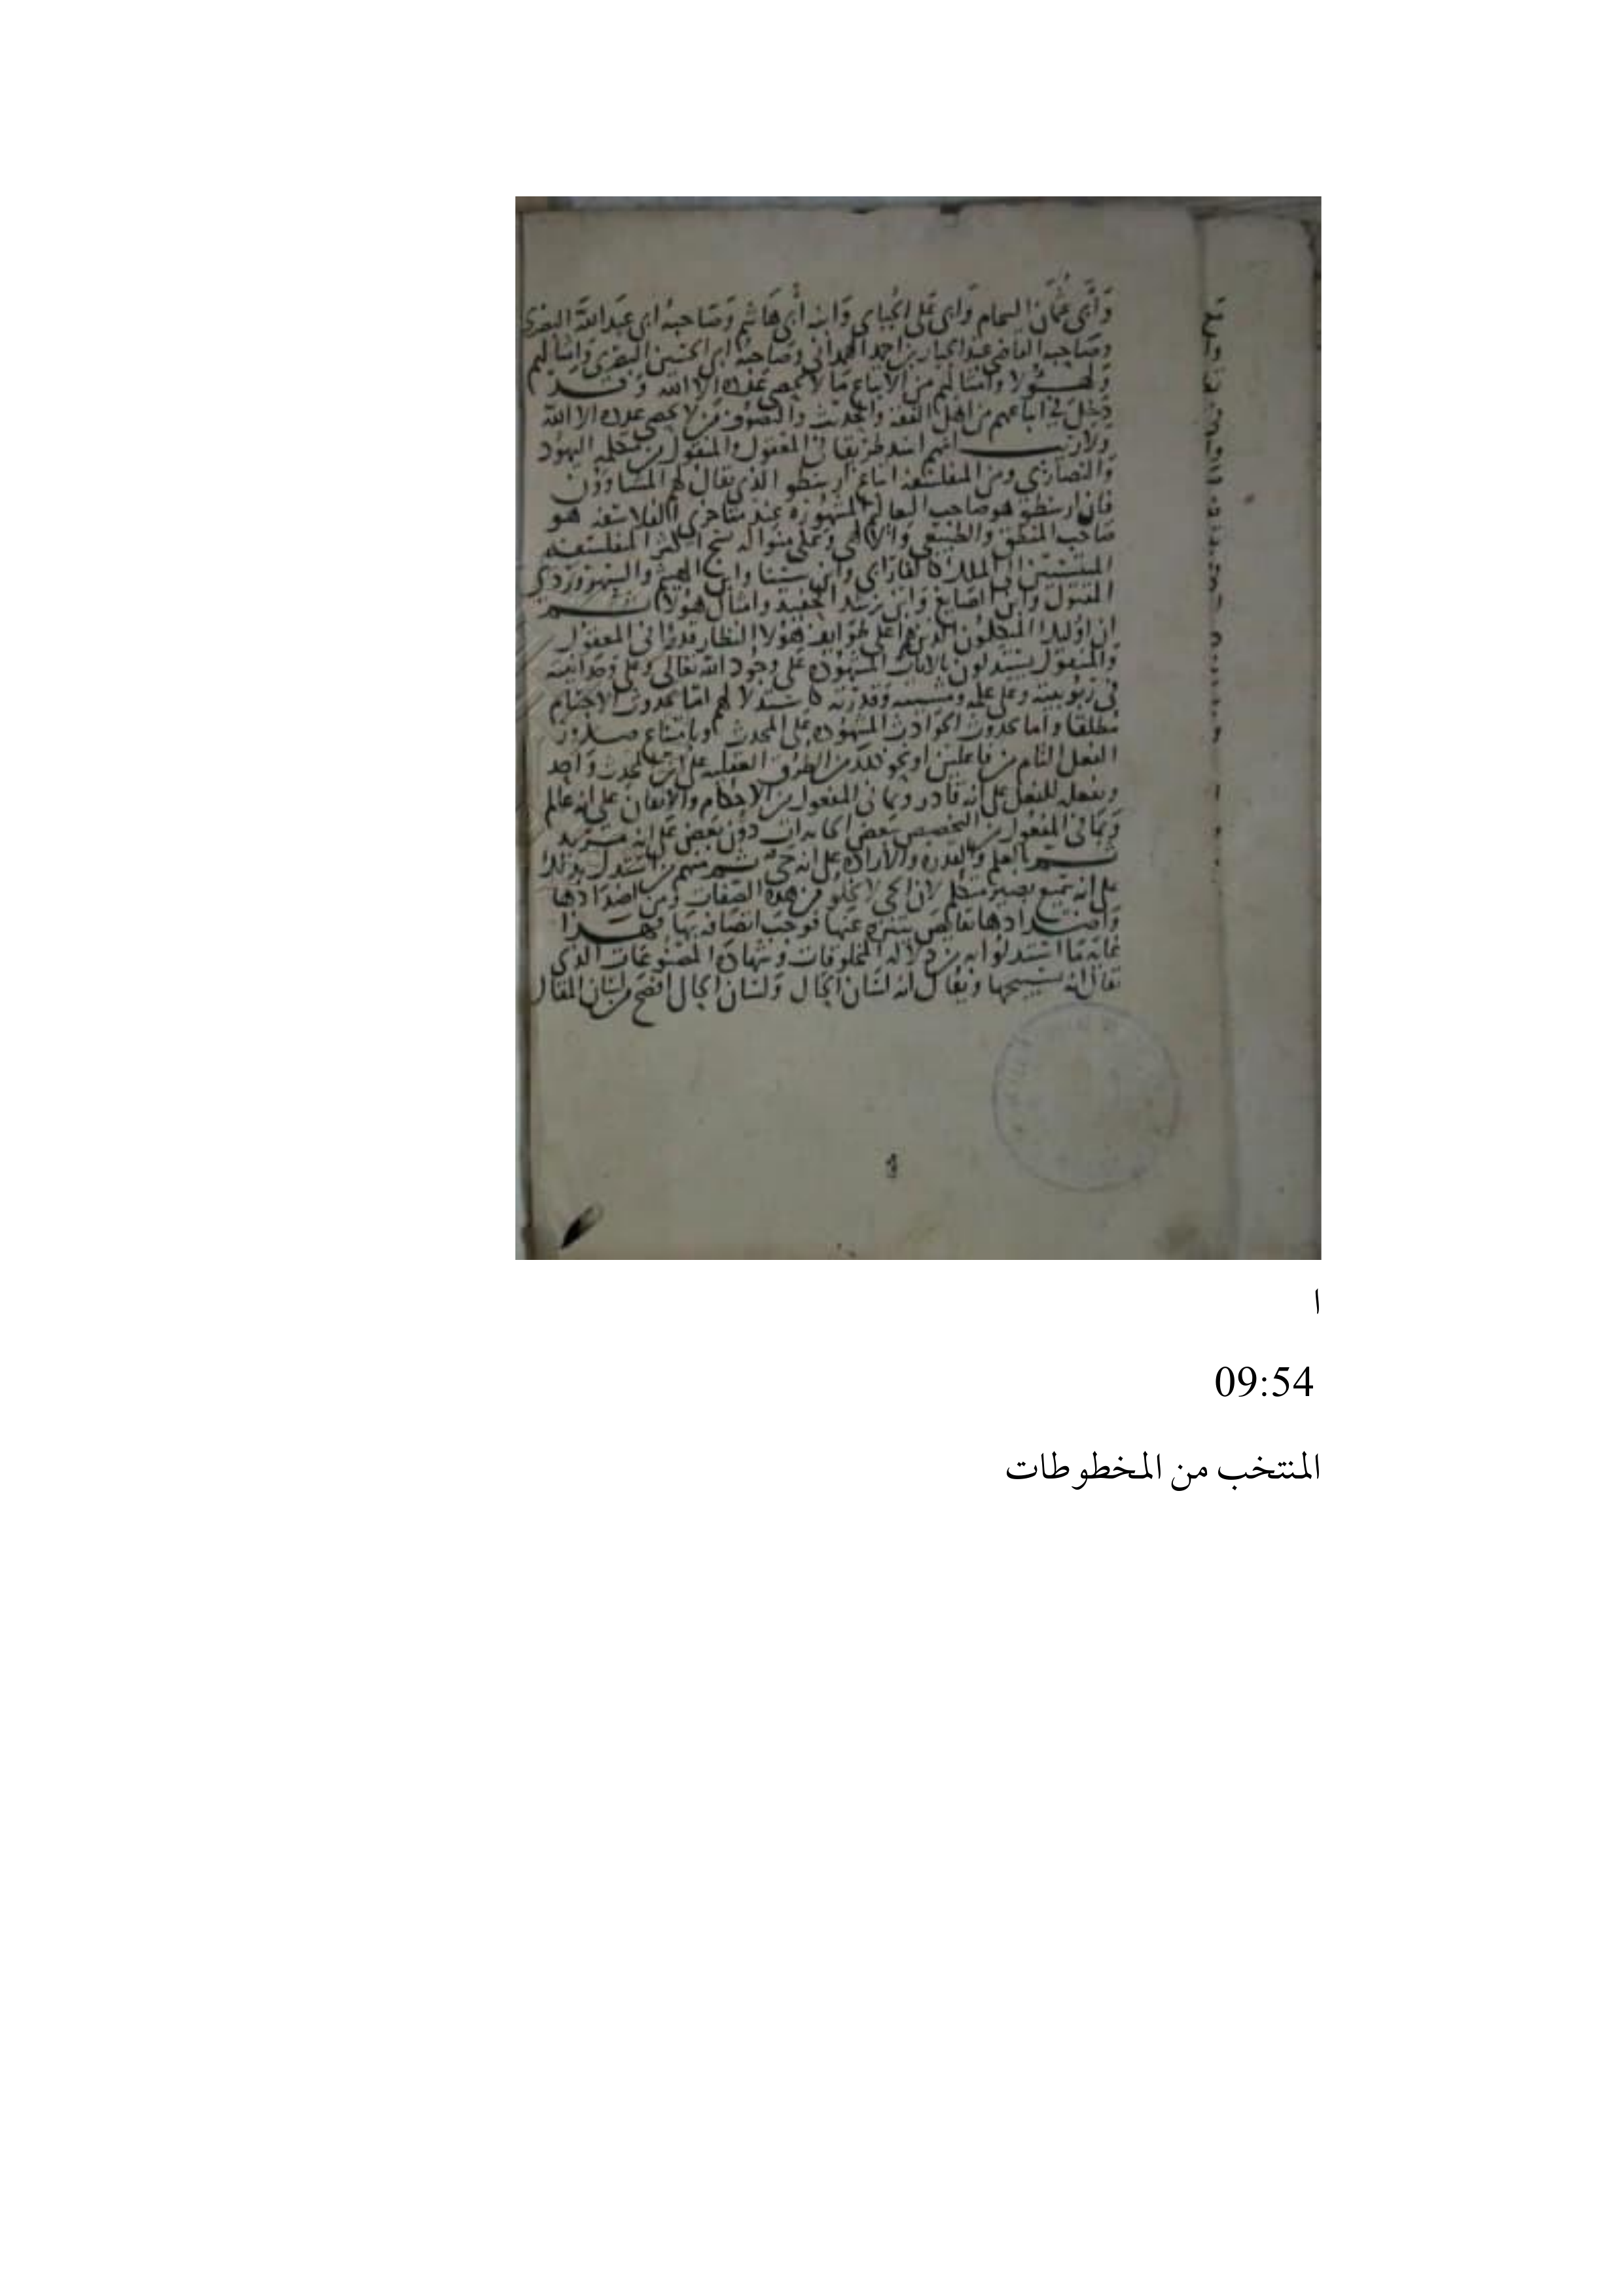 وَأبي عُثمان الشحام وَابي عَلى الجُبائي وَابنه أبي هَاشم وَصَاحبه ابي عَبدالله البصَرى
وصَاحبه القاضى عبدالجبار بن احمد الهمدانى وصَاحبه ابى الحسَين البصَرى وَامثالهم
وَلهــؤلا وامثالهم من الاتباع مَا لا يحصى عَدده الا الله وَقــد
دَخل في اتباعهم من اهل الفقه والحديث والتصَوف من لا يحصى عدده الا الله
وَلاريب انهم اسد طريقا فى المعقول والمنقول من متكلمه اليهُود
وَالنصَارى ومن المتفلسفه اتباع ارسطو الذى يقال لهم المشاؤون
فان ارسطو هو صاحب التعاليم المشهوره عند متاخرى الفلاسفه هو
صَاحب المنطق والطبيعى والالاهى وَعلى منواله نسج اكثر المتفلسفه
المنتسبين الى الملل كالفارابى وابن سينا وابن الهيثم والسهروردى
المقتول وابن الصايغ وَابن رشد الحفيد وامثال هؤلا ثــم
ان اوليك المتكلمون الذين هم اعلى طوايف هؤلا النظار قدرا فى المعقول
وَالمنقول يستدلون بالايات المشهُوده على وجُود الله تعالى وعلى وحدانيته
فى ربُوبيته وعلى علمه ومشيئته وَقدرَته كاستدلالهم اما بحدوث الاجسَام
مطلقا واما بحدوث الحوادث المشهُوده على المحدث وبامتناع صــدور
الفعل التام من فاعلين او نحو ذلك من الطرق العقليه على ان المحدث واحد
وبفعله للفعل على انه قادر وبما فى المفعول من الاحكام والاتقان على انه عالم
وَبما فى المفعول من التخصيص ببعض الجايزات دون بعض على انه مــريد
ثــم بالعلم والقدره والاراده على انه حى ثــم منهم من استدل بذلك
على انه سَميع بصير متكلم لان الحى لا يخلو من هذه الصفات ومن اضدادها
وَاضــدادها نقائص يتنزه عنها فوجَب اتصَافه بها فهــذا
غايه مَا استدلوا به من دلاله المخلوقات وشهادة المصنُوعَات الذى
يقال انه تسبيحها ويقال انه لسَان الحال وَلسَان الحال افصَح من لسَان المقال
ا
09:54
المنتخب من المخطوطات